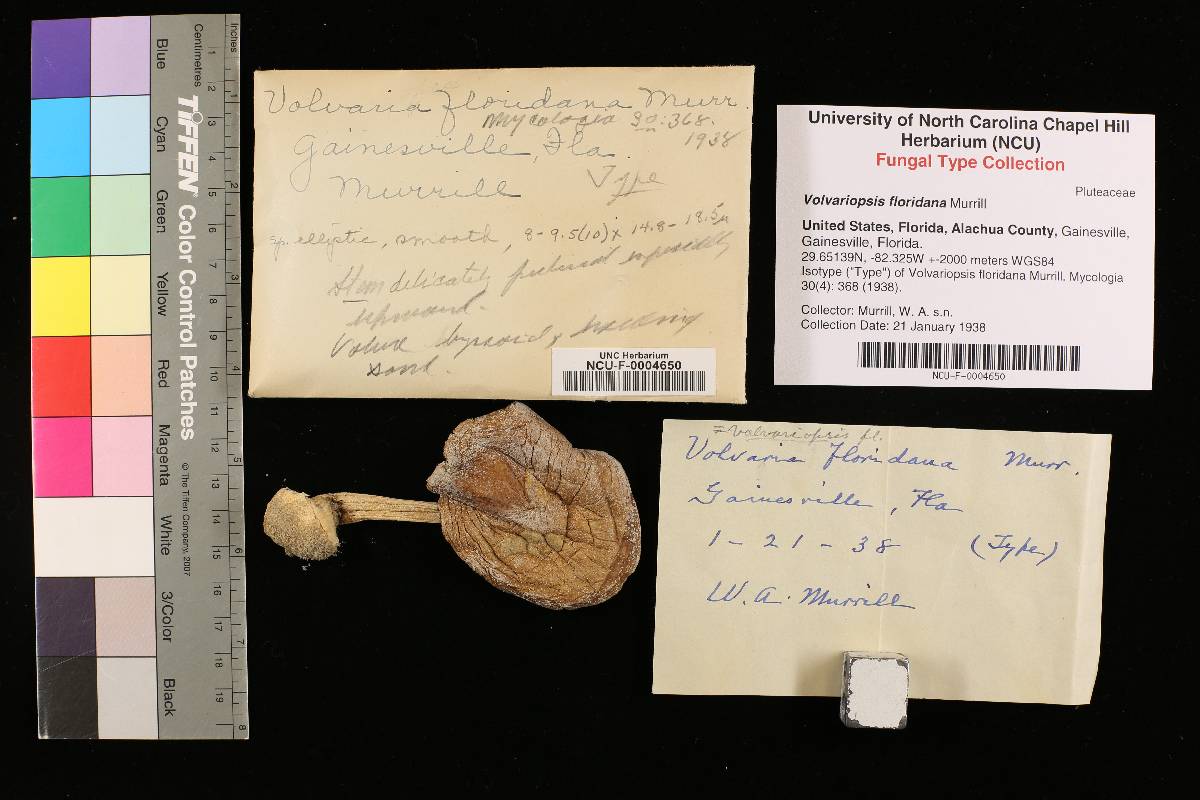 Inches
Centimetres
TIFFEN Color Control Patches
© The Tiffen Company, 2007
Blue
Cyan
Green
Yellow
Red
Magenta
White
3/Color
Black
1
2
3
4
5
6
7
8
9
10
11
12
13
14
15
16
17
18
19
1
2
3
4
5
6
7
8
Volvaria floridana Murr.
Mycologia 30:368.
1938
Gainesville, Fla.
Murrill Type
sp. elliptic, smooth, 8-9.5(10) x 14.8-18.5µ
Stem delicately especially
upward.
Volva
sand.
UNC Herbarium
NCU-F-0004650
University of North Carolina Chapel Hill
Herbarium (NCU)
Fungal Type Collection
Pluteaceae
Volvariopsis floridana Murrill
United States, Florida, Alachua County, Gainesville,
Gainesville, Florida.
29.65139N, -82.325W +-2000 meters WGS84
Isotype ("Type") of Volvariopsis floridana Murrill, Mycologia
30(4): 368 (1938).
Collector: Murrill, W. A. s.n.
Collection Date: 21 January 1938
NCU-F-0004650
= Volvariopsis fl.
Volvaria floridana Murr.
Gainesville, Fla
1-21-38 (Type)
W. A. Murrill